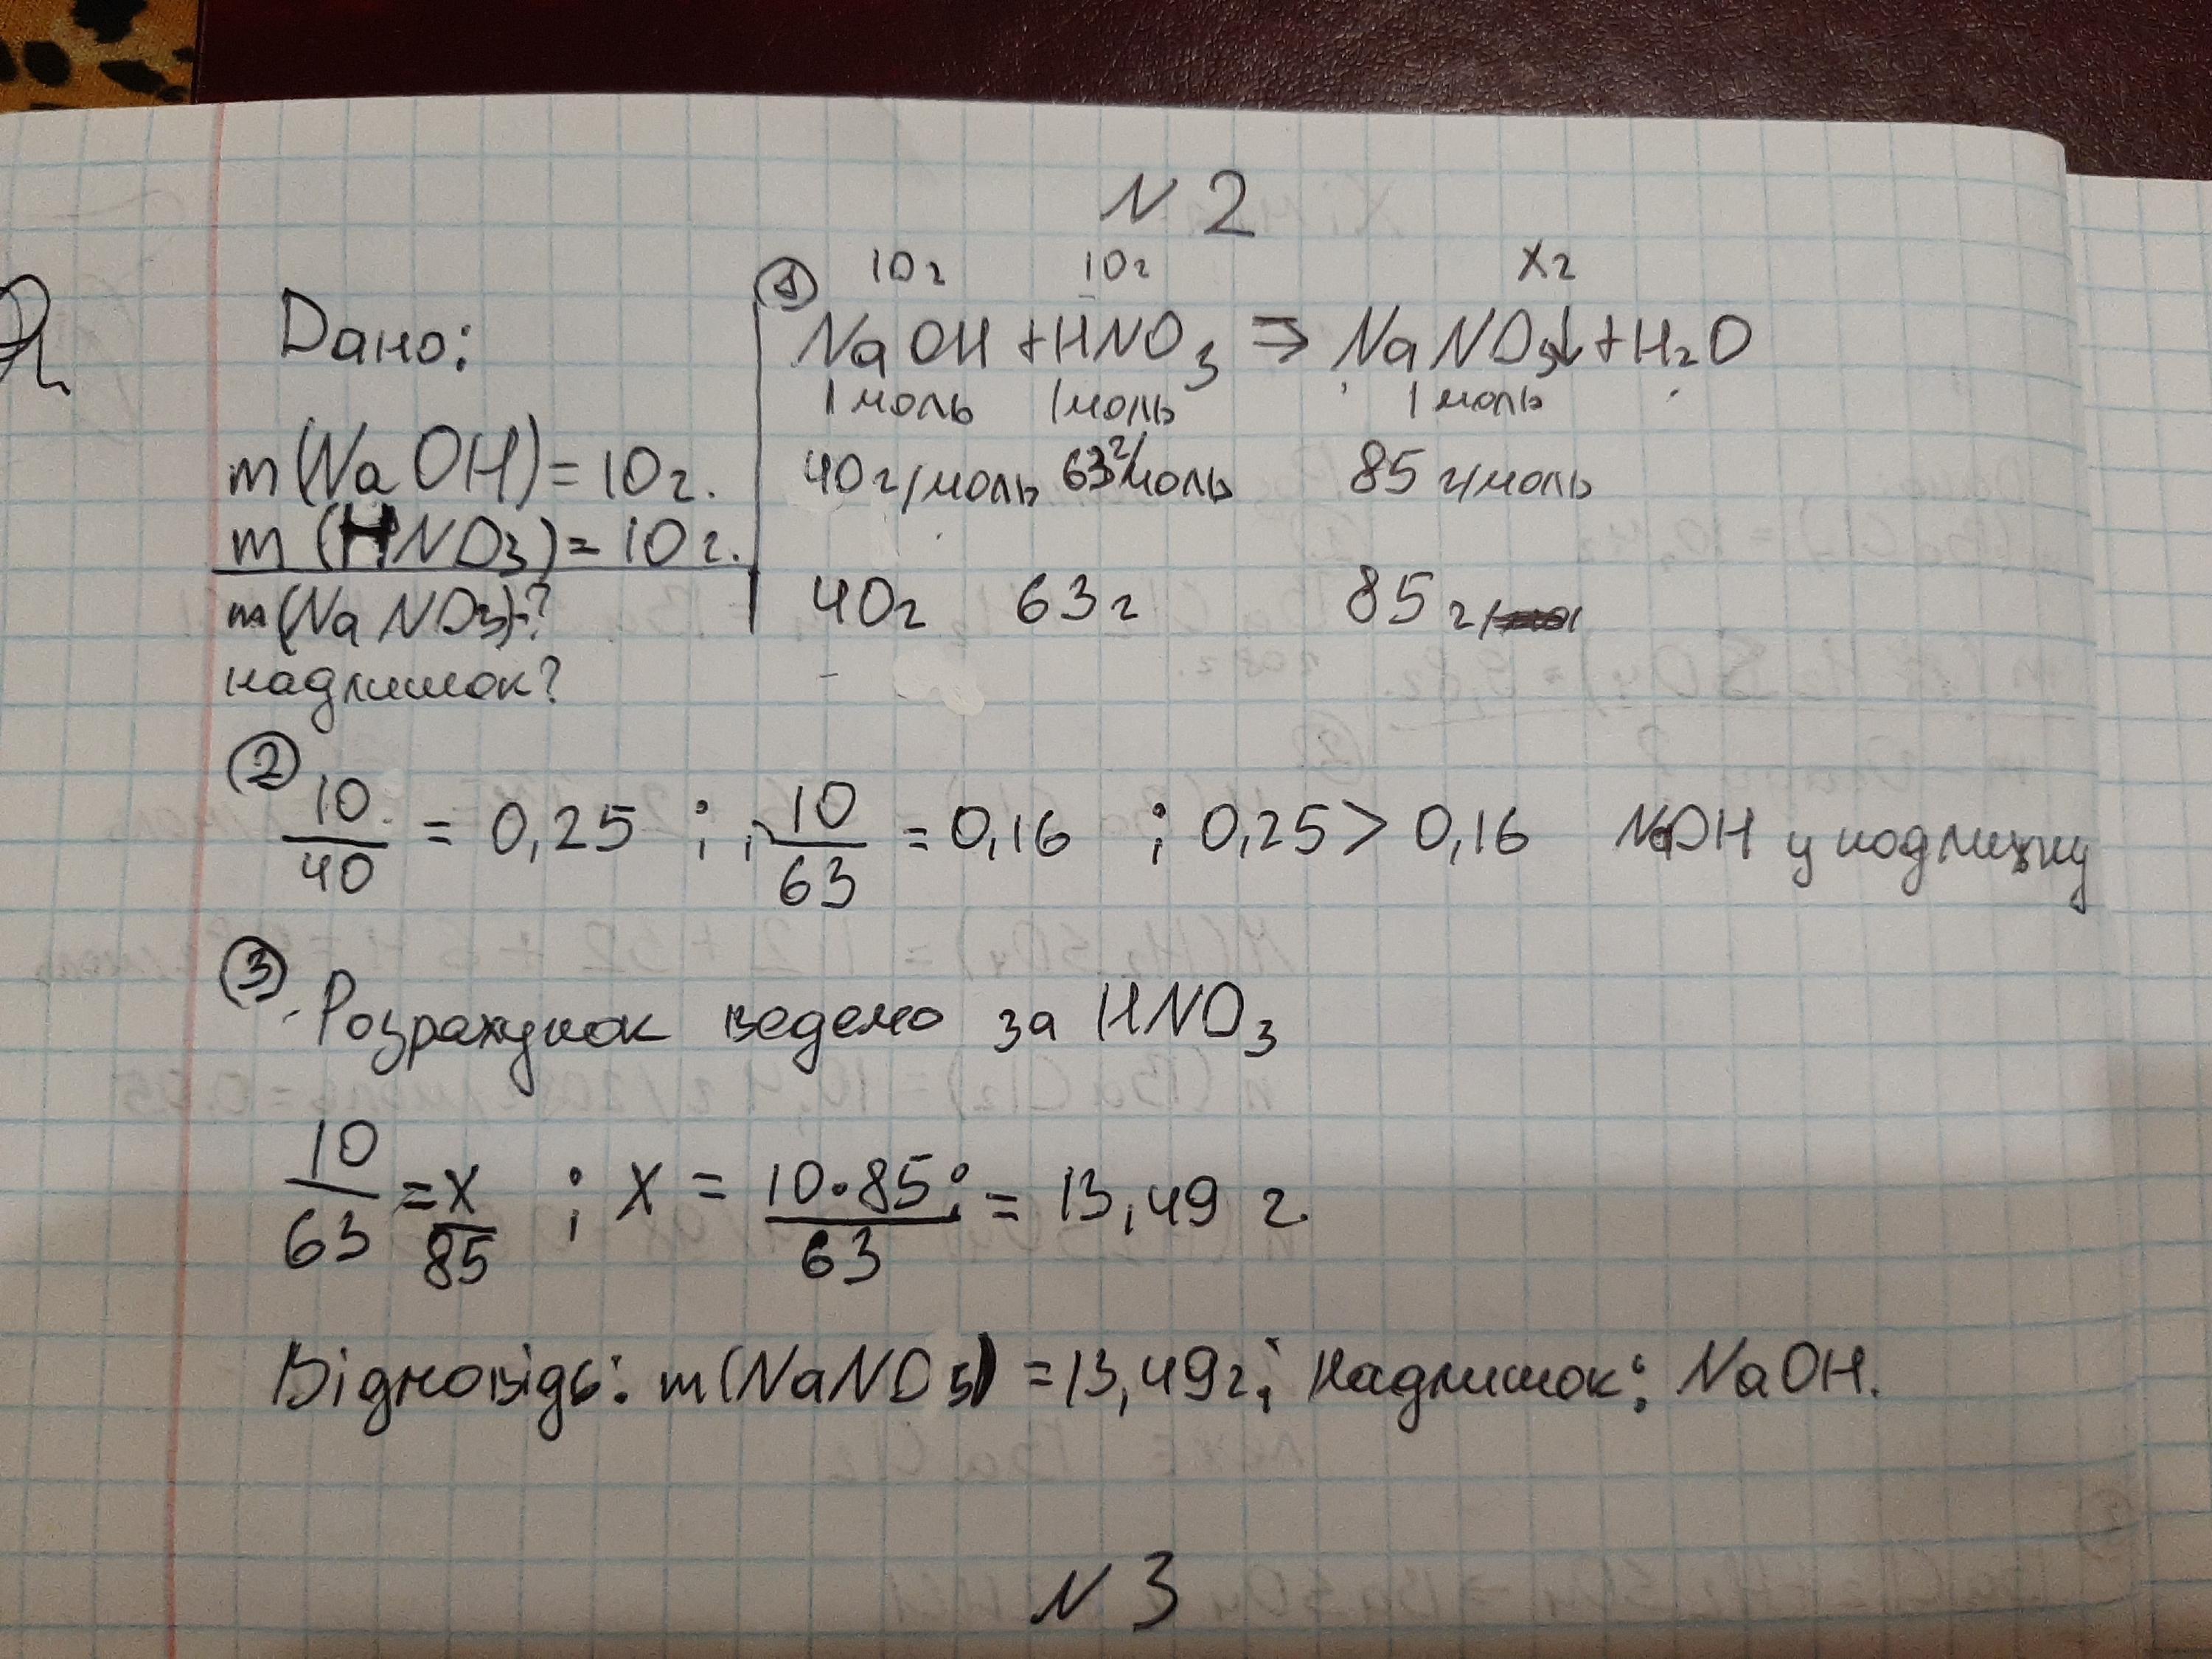 N 2
Дано:
m(NaOH)=10г.
m(HNO3)=10г.
m(NaNO3)-?
надлишок?
① 10г 10г xг
NaOH+HNO3 ⇒ NaNO3↓+H2O
1 моль 1 моль 1 моль
40г/моль 63г/моль 85г/моль
40г 63г 85г/
② 10/40 = 0,25 ; 10/63 = 0,16 ; 0,25 > 0,16 NaOH у надлишку
③ Розрахунок ведемо за HNO3
10/63 = x/85 ; x = 10·85/63 ; = 13,49 г.
Відповідь: m(NaNO3) =13,49г; Надлишок: NaOH.
N 3